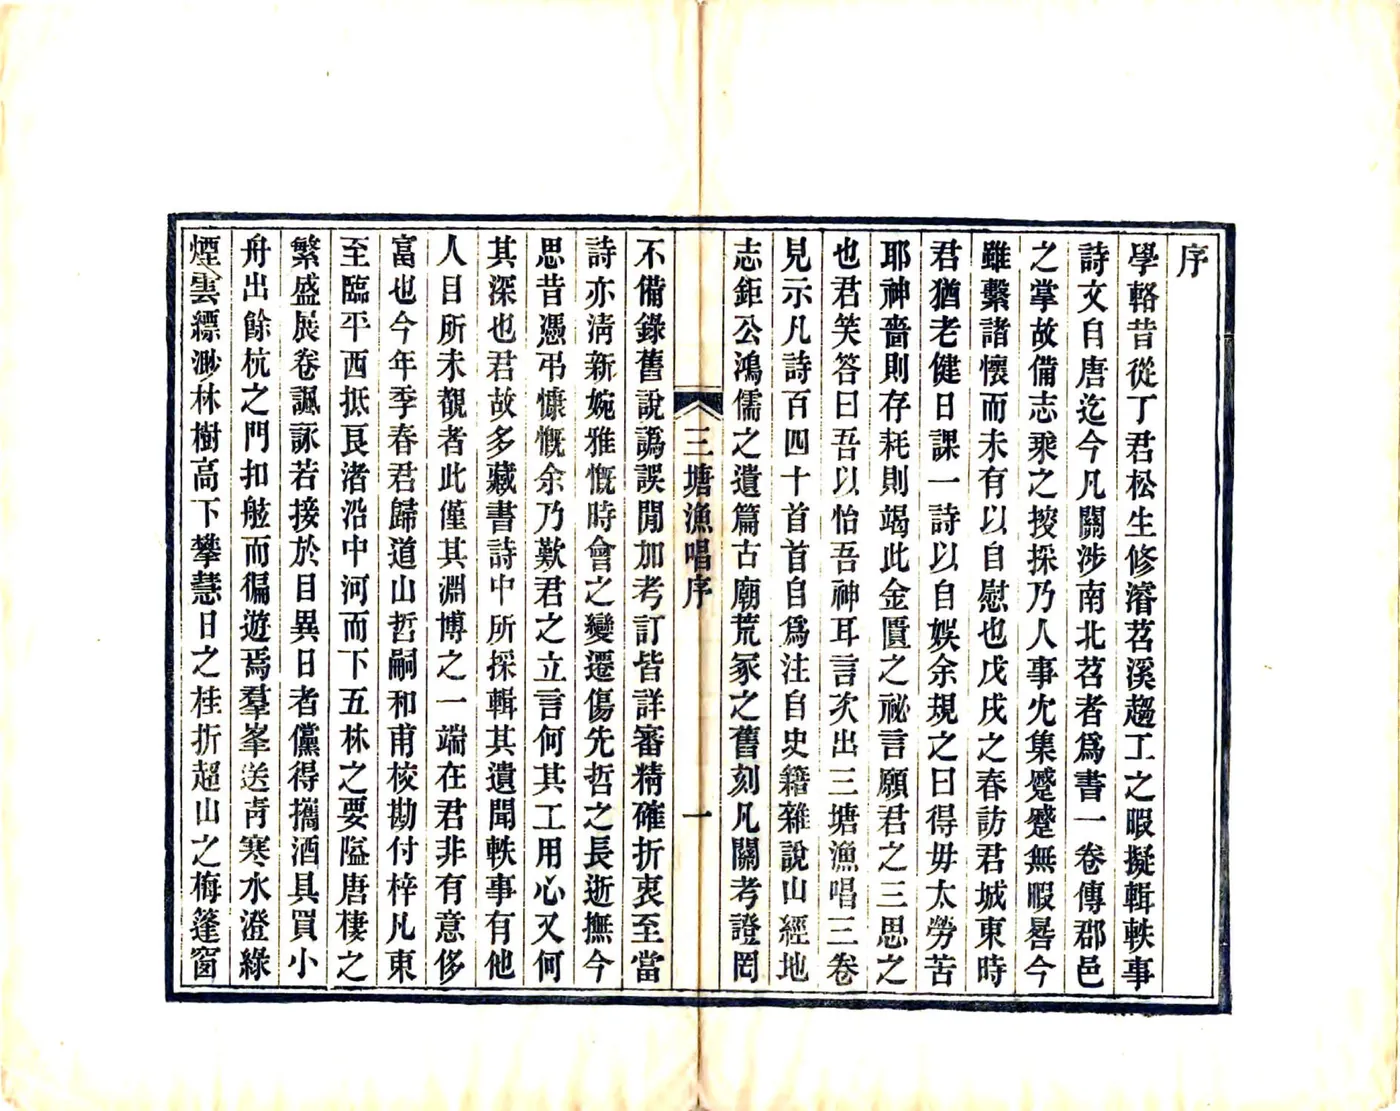 序
學輅昔從丁君松生修濬苕溪趨工之暇擬輯軼事
詩文自唐迄今凡關涉南北苕者爲書一卷傳郡邑
之掌故備志乘之搜採乃人事宂集蹙蹙無暇晷今
雖繫諸懷而未有以自慰也戊戌之春訪君城東時
君猶老健日課一詩以自娛余規之曰得毋太勞苦
耶神嗇則存耗則竭此金匱之祕言願君之三思之
也君笑答曰吾以怡吾神耳言次出三塘漁唱三卷
見示凡詩百四十首首自爲注自史籍雜說山經地
志鉅公鴻儒之遺篇古廟荒冢之舊刻凡關考證罔
三塘漁唱序
一
不備錄舊說譌誤閒加考訂皆詳審精確折衷至當
詩亦淸新婉雅慨時會之變遷傷先哲之長逝撫今
思昔憑弔慷慨余乃歎君之立言何其工用心又何
其深也君故多藏書詩中所採輯其遺聞軼事有他
人目所未覩者此僅其淵博之一端在君非有意侈
富也今年季春君歸道山哲嗣和甫校勘付梓凡東
至臨平西抵艮渚沿中河而下五林之要隘唐棲之
繁盛展卷諷詠若接於目異日者儻得攜酒具買小
舟出餘杭之門扣舷而徧遊焉羣峯送靑寒水澄綠
煙雲縹渺林樹高下攀慧日之桂折超山之梅篷窗